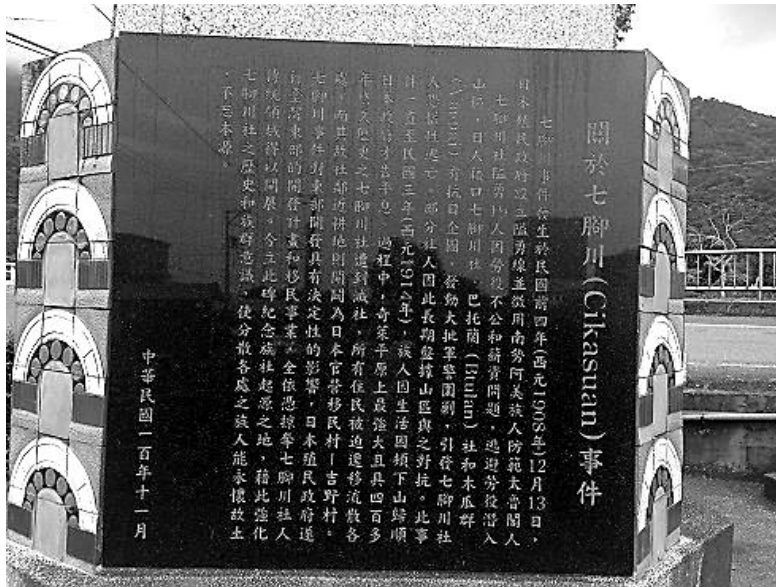 關於七腳川(Cikasuan)事件
七腳川事件發生於民國前四年(西元1908年)12月13日，
日本殖民政府設立隘勇線並徵用南勢阿美族人防範太魯閣人
七腳川社隘勇19人因勞役不公和薪資問題，逃避勞役潛入
山區，日人藉口七腳川社、巴托蘭(Btulan)社和木瓜群
有抗日企圖，發動大批軍警圍剿，引發七腳川社
人集體性逃亡，部分社人因此長期盤據山區與之對抗。此事
件一直至民國三年(西元1914年)，族人因生活困頓下山歸順
日本政府才告平息。過程中，奇萊平原上最強大且具四百多
年悠久歷史之七腳川社遭到滅社，所有住民被迫遷移流散各
處，而其故社鄰近耕地則闢為日本官營移民村—吉野村。
七腳川事件對東部開發具有決定性的影響，日本殖民政府遂
行臺灣東部的開發計畫和移民事業，全依憑掠奪七腳川社人
傳統領域得以開展。今立此碑紀念族社起源之地，藉此強化
七腳川社之歷史和族群意識，使分散各處之族人能永懷故土
，不忘本源。
中華民國一百年十一月